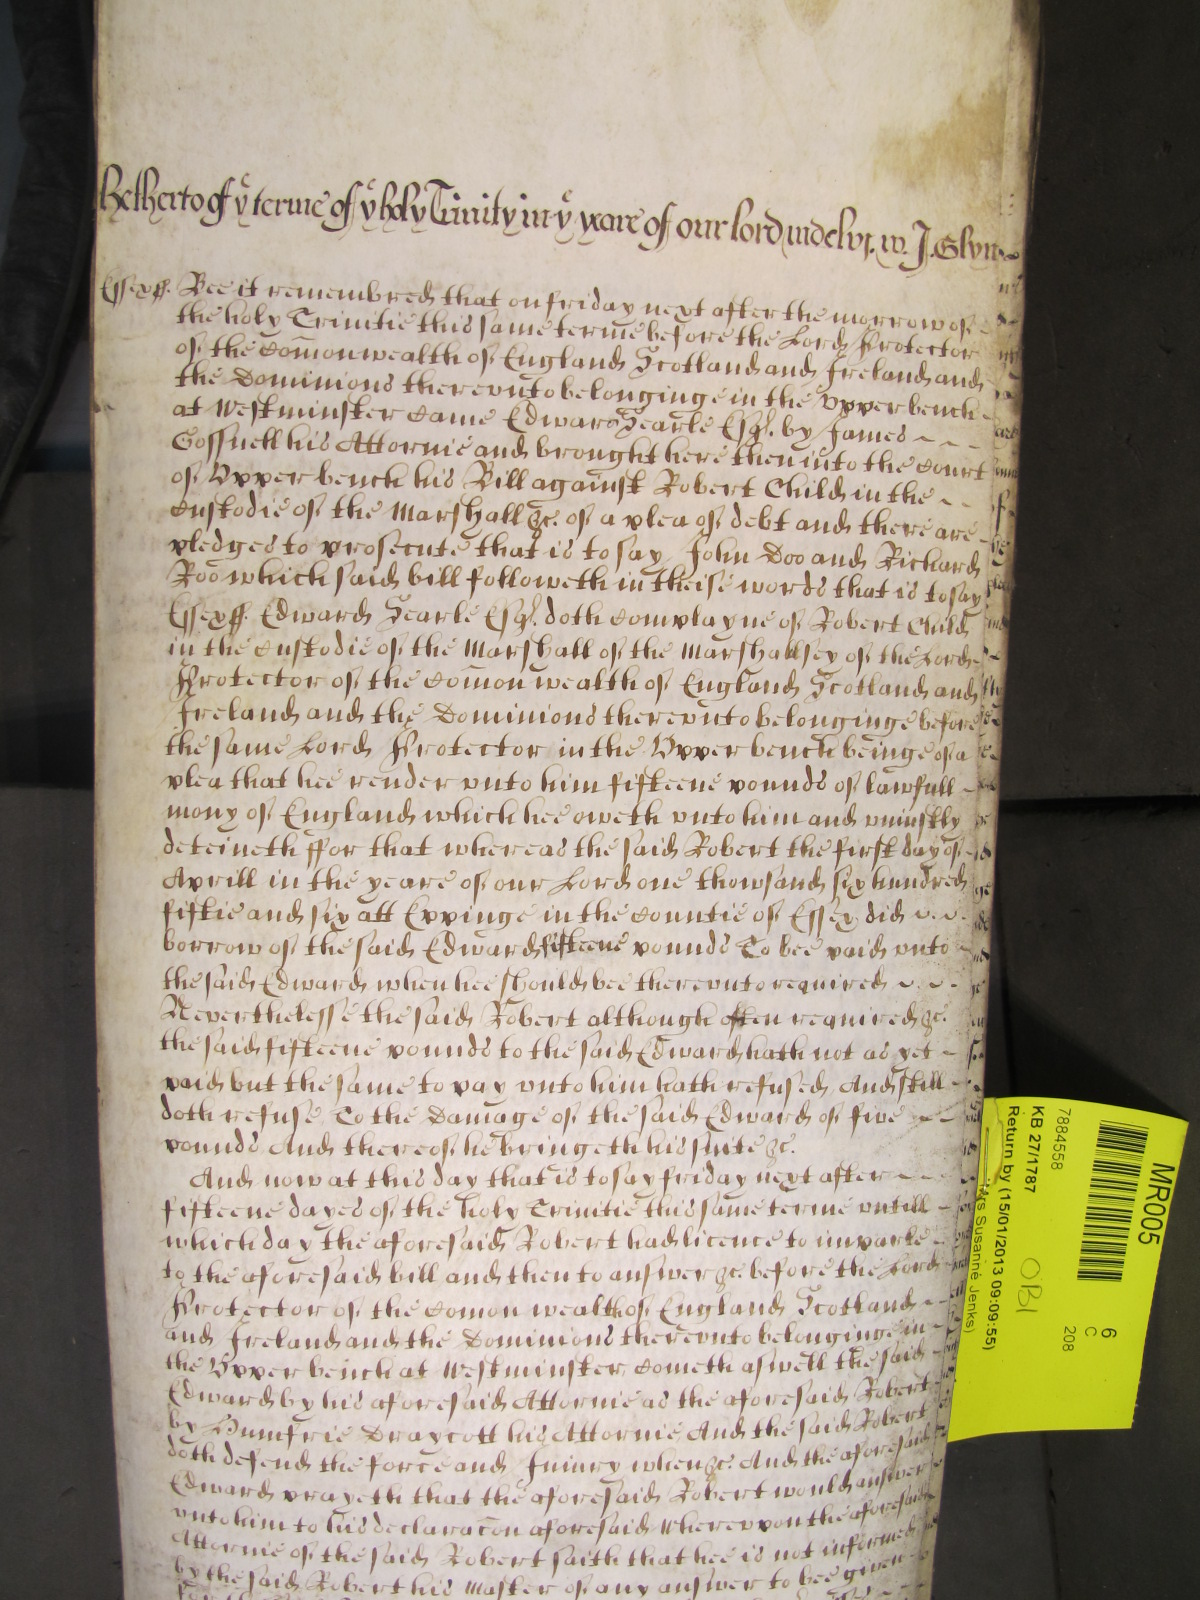 Hetherto of yͤ terme of yͤ holy Trinity in yͤ yeare of our lord mdclvj. w. J. Glyn
Essex ss. Bee it remembred that on friday next after the morrow of
the holy Trinitie this same terme before the Lord Protector
of the Com̄onwealth of England Scotland and Ireland and
the Dominions therevnto belonginge in the vpper bench
at Westminster Came Edward Searle Esqr. by James
Gossnell his Attornie and brought here then into the Court
of Vpper bench his Bill against Robert Child in the
Custodie of the Marshall &c. of a plea of debt and there are
pledges to prosecute that is to say John Doo and Richard
Roo which said bill followeth in theise words that is to say
Essex ss. Edward Searle Esqr. doth Complayne of Robert Child
in the Custodie of the Marshall of the Marshallsey of the Lord
Protector of the Com̄on wealth of England Scotland and
Ireland and the Dominions therevnto belonginge before
the same Lord Protector in the Vpper bench beinge of a
plea that hee render vnto him fifteene pounds of lawfull
mony of England which hee oweth vnto him and vniustly
deteineth ffor that whereas the said Robert the first day of
Aprill in the yeare of our Lord one thowsand six hundred
fiftie and six att Eppinge in the Countie of Essex did
borrow of the said Edward fifteene pounds To bee paid vnto
the said Edward when hee should bee therevnto required
Neverthelesse the said Robert although often required &c.
the said fifteene pounds to the said Edward hath not as yet
paid but the same to pay vnto him hath refused And still
doth refuse To the Damage of the said Edward of five
pounds And thereof he bringeth his suite &c.
And now at this day that is to say friday next after
fifteene dayes of the holy Trinitie this same terme vntill
which day the aforesaid Robert had licence to imparle
to the aforesaid bill and then to answer &c. before the Lord
Protector of the Com̄on wealth of England Scotland
and Ireland and the Dominions therevnto belonginge in
the Vpper bench at Westminster Cometh aswell the said
Edward by his aforesaid Attornie as the aforesaid Robert
by Humfrie Draycott his Attornie And the said Robert
doth defend the force and Iniury when &c. And the aforesaid
Edward prayeth that the aforesaid Robert would answer
vnto him to his declarac̄on aforesaid Wherevpon the aforesaid
Attornie of the said Robert saith that hee is not informed
by the said Robert his Master of any answer to bee given
MR005
6
C
208
7884558
KB 27/1787
OBI
Return by (15/01/2013 09:09:55)
Mrs Susanne Jenks)